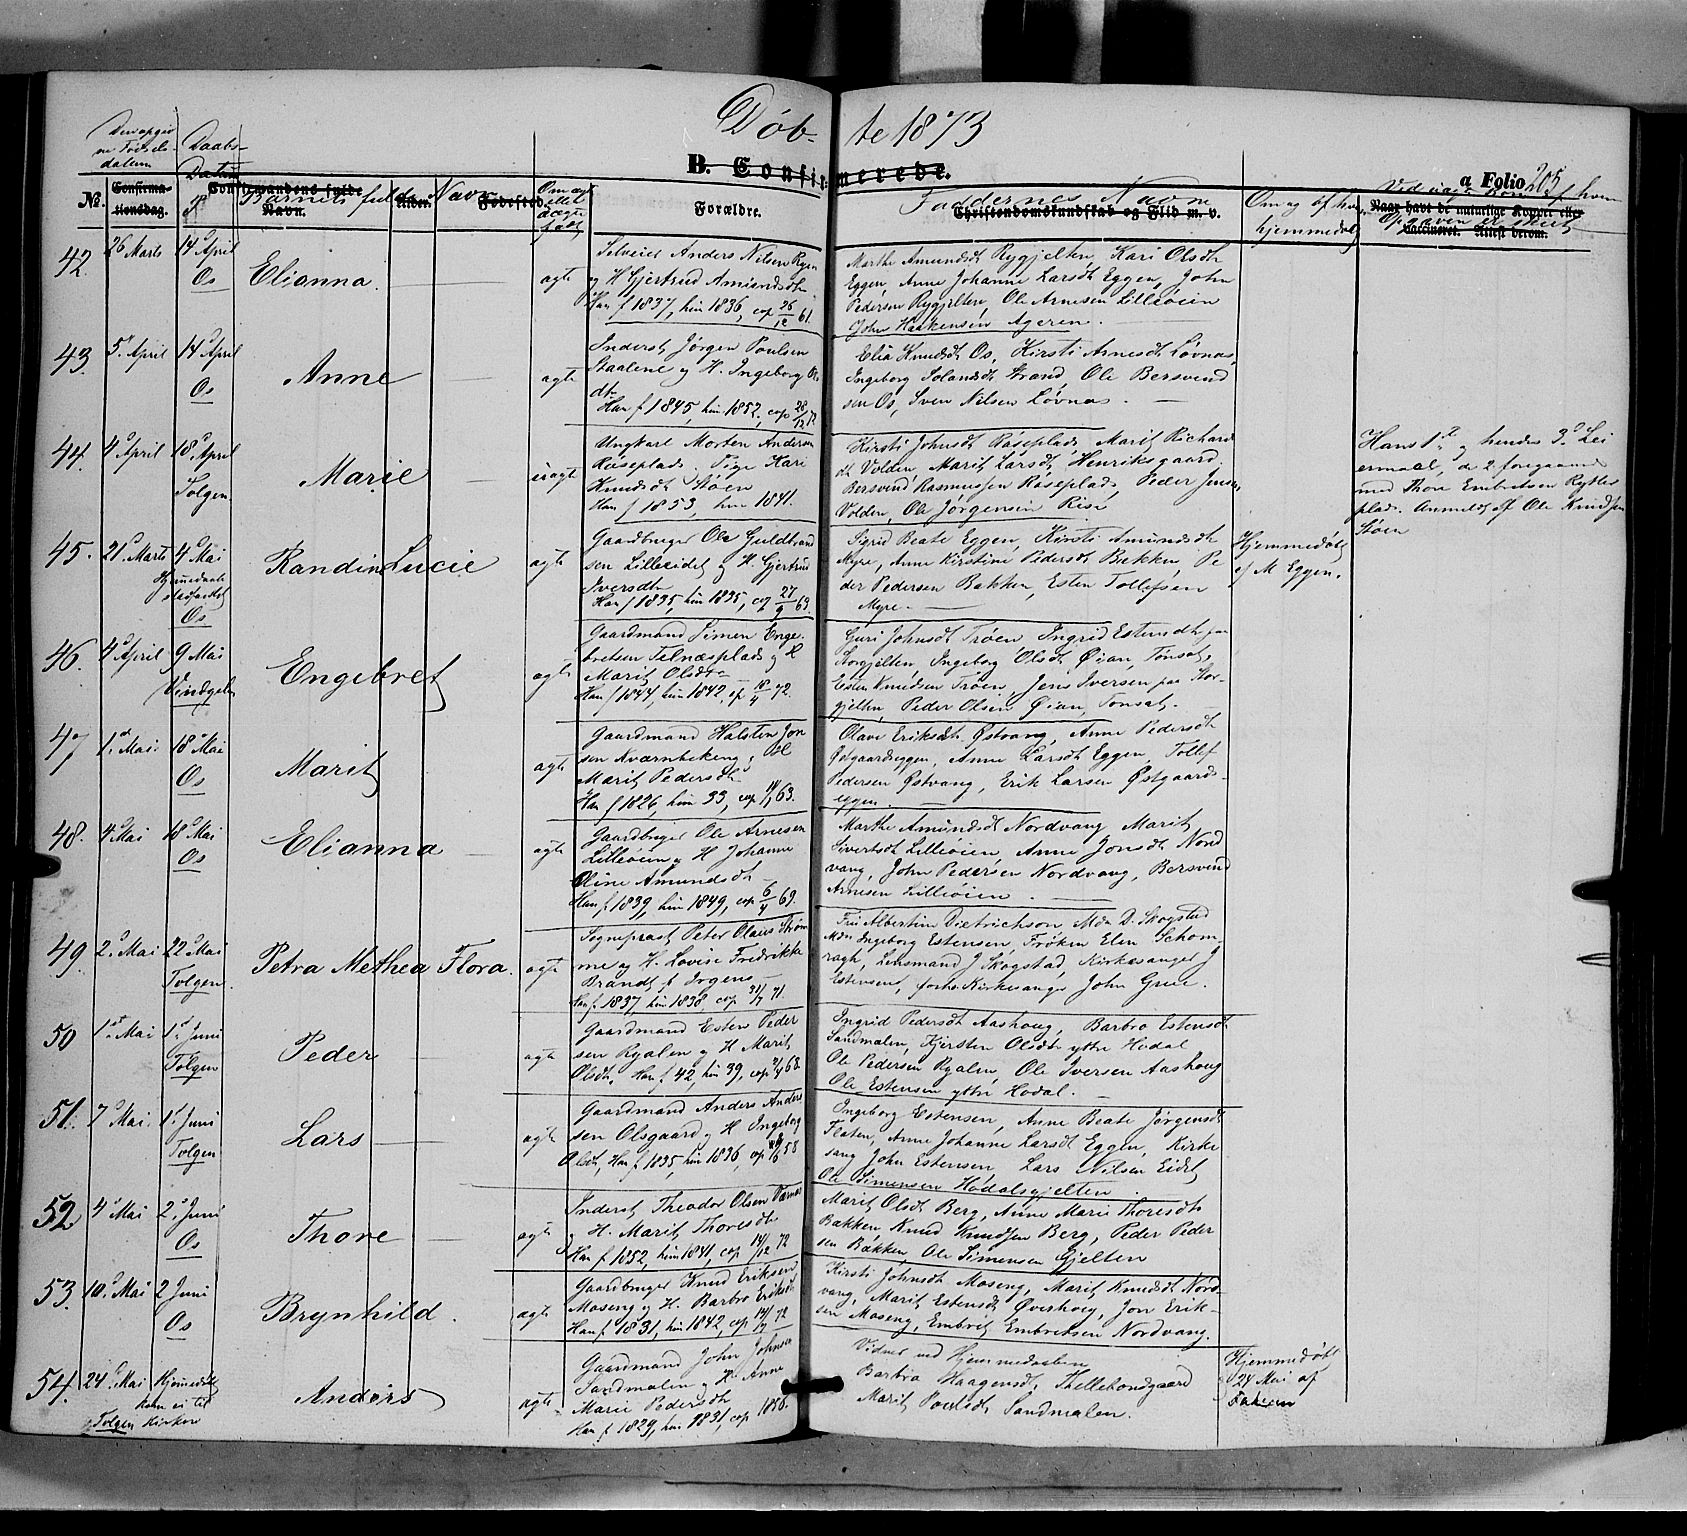 Døb- te 1873
B. Confirmerede.
a Folio 205
Den opgivne Fødselsdatum
Daabs-Datum
No.
Confirmationsdag.
Confirmandens fulde Navn.
Barnets fulde Navn
Alder.
Fødested.
Om ægte eller uægte født
Forældre.
Faddernes Navne
Christendomskundskab og Flid m. v.
Om og af hvem hjemmedøbt
Naar havt de naturlige Kopper eller
Vaccineret. Attest derom.
42. 26 Marts 14 April Os
Elianna ægte
Selveier Anders Nilsen Ryen
og H Gjertrud Amundsdtr
Han f 1837, hun 1836, cop 26/12 61.
Marthe Amundsdt Rygjelten, Kari Olsdtr
Eggen, Anne Johanne Larsdt Eggen, John
Pedersen Rygjelten, Ole Arnesen Lilleøien
John Haakensen Ageren.
43. 5. April 14 April Os
Anne ægte
Inderst Jørgen Poulsen
Staalene og H. Ingeborg Ols
dtr
Han f 1845, hun 1852, cop 28/12 72
Elia Knudsdt Os, Kirsti Arnesdt Løvnas,
Ingeborg Solandsdt Strand, Ole Bersvend
sen Os, Sven Nilsen Løvnas.
44. 4 April 18 April Tolgen
Marie uægte
Ungkarl Morten Andersen
Røseplads. Pige Kari
Knudsdt Støen
Han f 1853, hun 1841.
Kirsti Johnsdt Røseplads, Marit Richards
dt Volden, Marit Larsdt Henriksgaard
Bersvend Rasmussen Røseplads, Peder Jensen
Volden, Ole Jørgensen Rise
Hans 1ste og hendes 3die Lei
ermaal, de 2 foregaaende
med Thore Embretsen Rytter
plads. Anmeldt af Ole Knudsen
Støen
45. 21. Marts 4 Mai Hjemmedaab stadfæstet Os
Randine Lucie ægte
Gaardbruger Ole Guldbrand
sen Lilleeidet og H. Gjertrud
Iversdtr
Han f 1835, hun 1835, cop 27/9 63.
Sigrid Beate Eggen, Kirsti Amundsdt
Myre, Anne Kirstine Pedersdt Bakken, Pe
der Pedersen Bakken, Esten Tollefsen
Myre.
Hjemmedøbt
af M Eggen.
46. 4 April 9 Mai Vindgelen
Engebret ægte
Gaardmand Simen Enge
bretsen Telnæsplads og H
Marit Olsdtr
Han f 1844, hun 1842, cop 18/4 72.
Guri Johnsdt Trøen, Ingrid Estensdt paa
Storgjelten, Ingeborg Olsdt Øian, Tønset,
Esten Knudsen Trøen, Jens Iversen paa Stor-
gjelten, Peder Olsen Øian, Tønset.
47. 1. Mai. 18 Mai Os
Marit ægte
Gaardmand Halsten Jon
sen Kværnbekeng og H
Marit Pedersdt
Han f 1826, hun 33, cop 63.
Olave Eriksdt. Østvang, Anne Pedersdt
Østgaardseggen, Anne Larsdt Eggen, Tollef
Pedersen Østvang, Erik Larsen Østgaards-
eggen.
48. 4 Mai 18 Mai Os
Elianna ægte
Gaardbruger Ole Arnesen
Lilleøien og H Johanne
Oline Amundsdt
Han f. 1839, hun 1849, cop 6/4 69.
Marthe Amundsdt Nordvang Marit
Sivertsdt Lilleøien, Anne Jonsdt Nord
vang, John Pedersen Nordvang, Bersvend
Arnesen Lilleøien.
49. 2. Mai 22 Mai Tolgen.
Petra Methea Flora. ægte
Sogneprest Peter Olaus Strøm
me og H. Lovise Fredrikke
Brandt f. Irgens
Han f. 1837, hun 1838, cop 31/7 71.
Fru Albertine Dietrichson, Mdm D. Skogstad
Mdm Ingeborg Estensen, Frøken Elen Schom
ragh, Lensmand J Skogstad, Kirkesanger J
Estensen, forhv Kirkesanger John Grue.
50 1ste Mai 1ste Juni Tolgen
Peder ægte
Gaardmand Esten Peder
sen Ryalen og H Marit
Olsdt, Han f. 42, hun 39, cop 2/4 68.
Ingrid Pedersdt Aashoug, Barbro Estensdt
Sandmælen, Kjersten Olsdt ytre Hodal
Ole Pedersen Ryalen, Ole Iversen Aashoug
Ole Estensen ytre Hodal.
51. 7 Mai. 1 Juni Tolgen
Lars ægte
Gaardmand Anders Anders
sen Olsgaard og H Ingeborg
Olsdt, Han f. 1835, hun 1836, cop 58
Ingeborg Estensen, Anne Beate Jørgensdt
Flaten, Anne Johanne Larsdt Eggen, Kirke
sang John Estensen, Lars Nilsen Eidet
Ole Simensen Hodalsgjelten
52 4 Mai 2. Juni Os
Thore ægte
Inderst Theodor Olsen Værnæs
og H. Marit Thoresdt
Han f 1852, hun 1841, cop 14/12 72
Marit Olsdt Berg, Anne Marie Thoresdt
Bakken Knud Knudsen Berg, Peder Peder
sen Bakken, Ole Simensen Gjelten
53. 10. Mai 2 Juni Os
Brynhild. ægte
Gaardbruger Knud Eriksen
Moseng og H. Barbro Eriksdt
Han f 1831, hun 1842, cop 72
Kirsti Johnsdt Moseng, Marit Knudsdt Nord-
vang, Marit Estensdt Øverhoug, Jon Erik-
sen Moseng, Embret Embretsen Nordvang.
54. 24. Mai Hjemmedøbt kom ei til Tolgen Kirke
Anders ægte
Gaardmand John Johnsen
Sandmælen og H Anne
Marie Pedersdt
Han f 1829, hun 1831, cop 1856.
Vidner ved Hjemmedaaben
Barbra Haagensdt, Thellebondgaard
Marit Poulsdt Sandmælen.
Hjemmedøbt
24 Mai af
Faderen